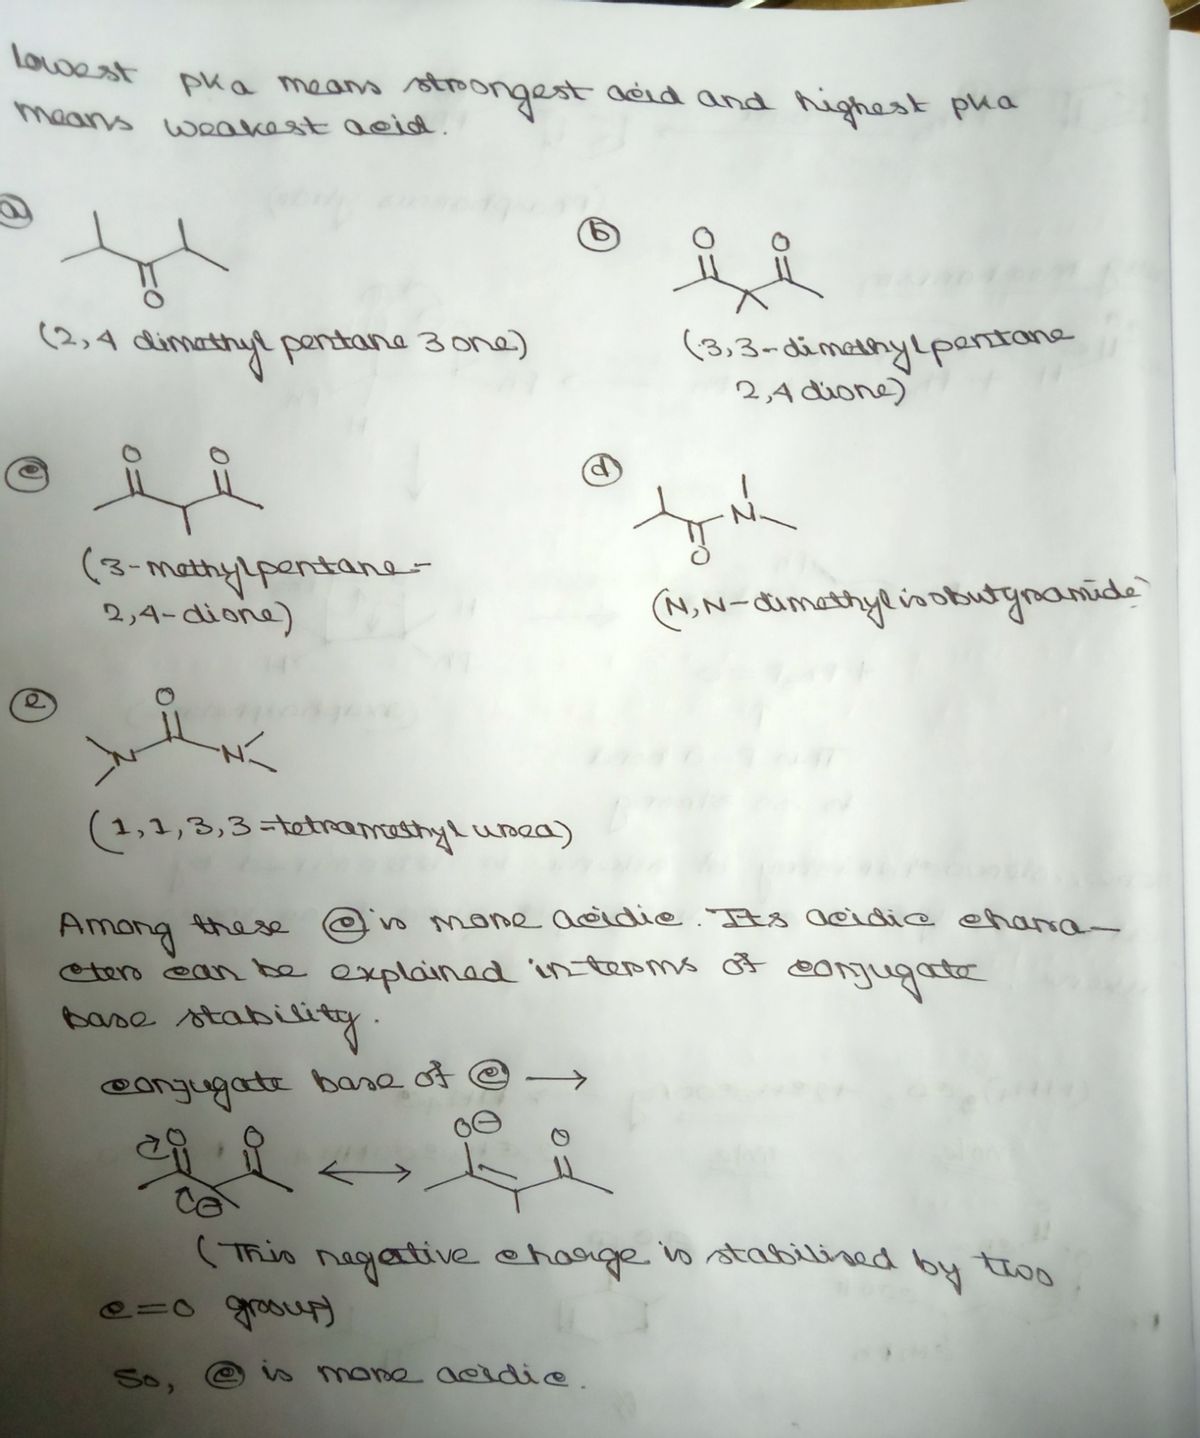 Lowest pka means strongest acid and highest pka
means weakest acid.
a
b
O
O O
(2,4 dimethyl pentane 3 one)
(3,3-dimethylpentane
2,4 dione)
c
d
O O
N
O
(3-methylpentane-
2,4-dione)
(N,N-dimethylisobutyramide)
e
O
N N
(1,1,3,3-tetramethyl urea)
Among these c is more acidic. Its acidic chara-
cters can be explained in terms of conjugate
base stability.
conjugate base of c →
O O ↔ O⊖ O
⊖
(This negative charge is stabilised by two
c=o group)
So, c is more acidic.